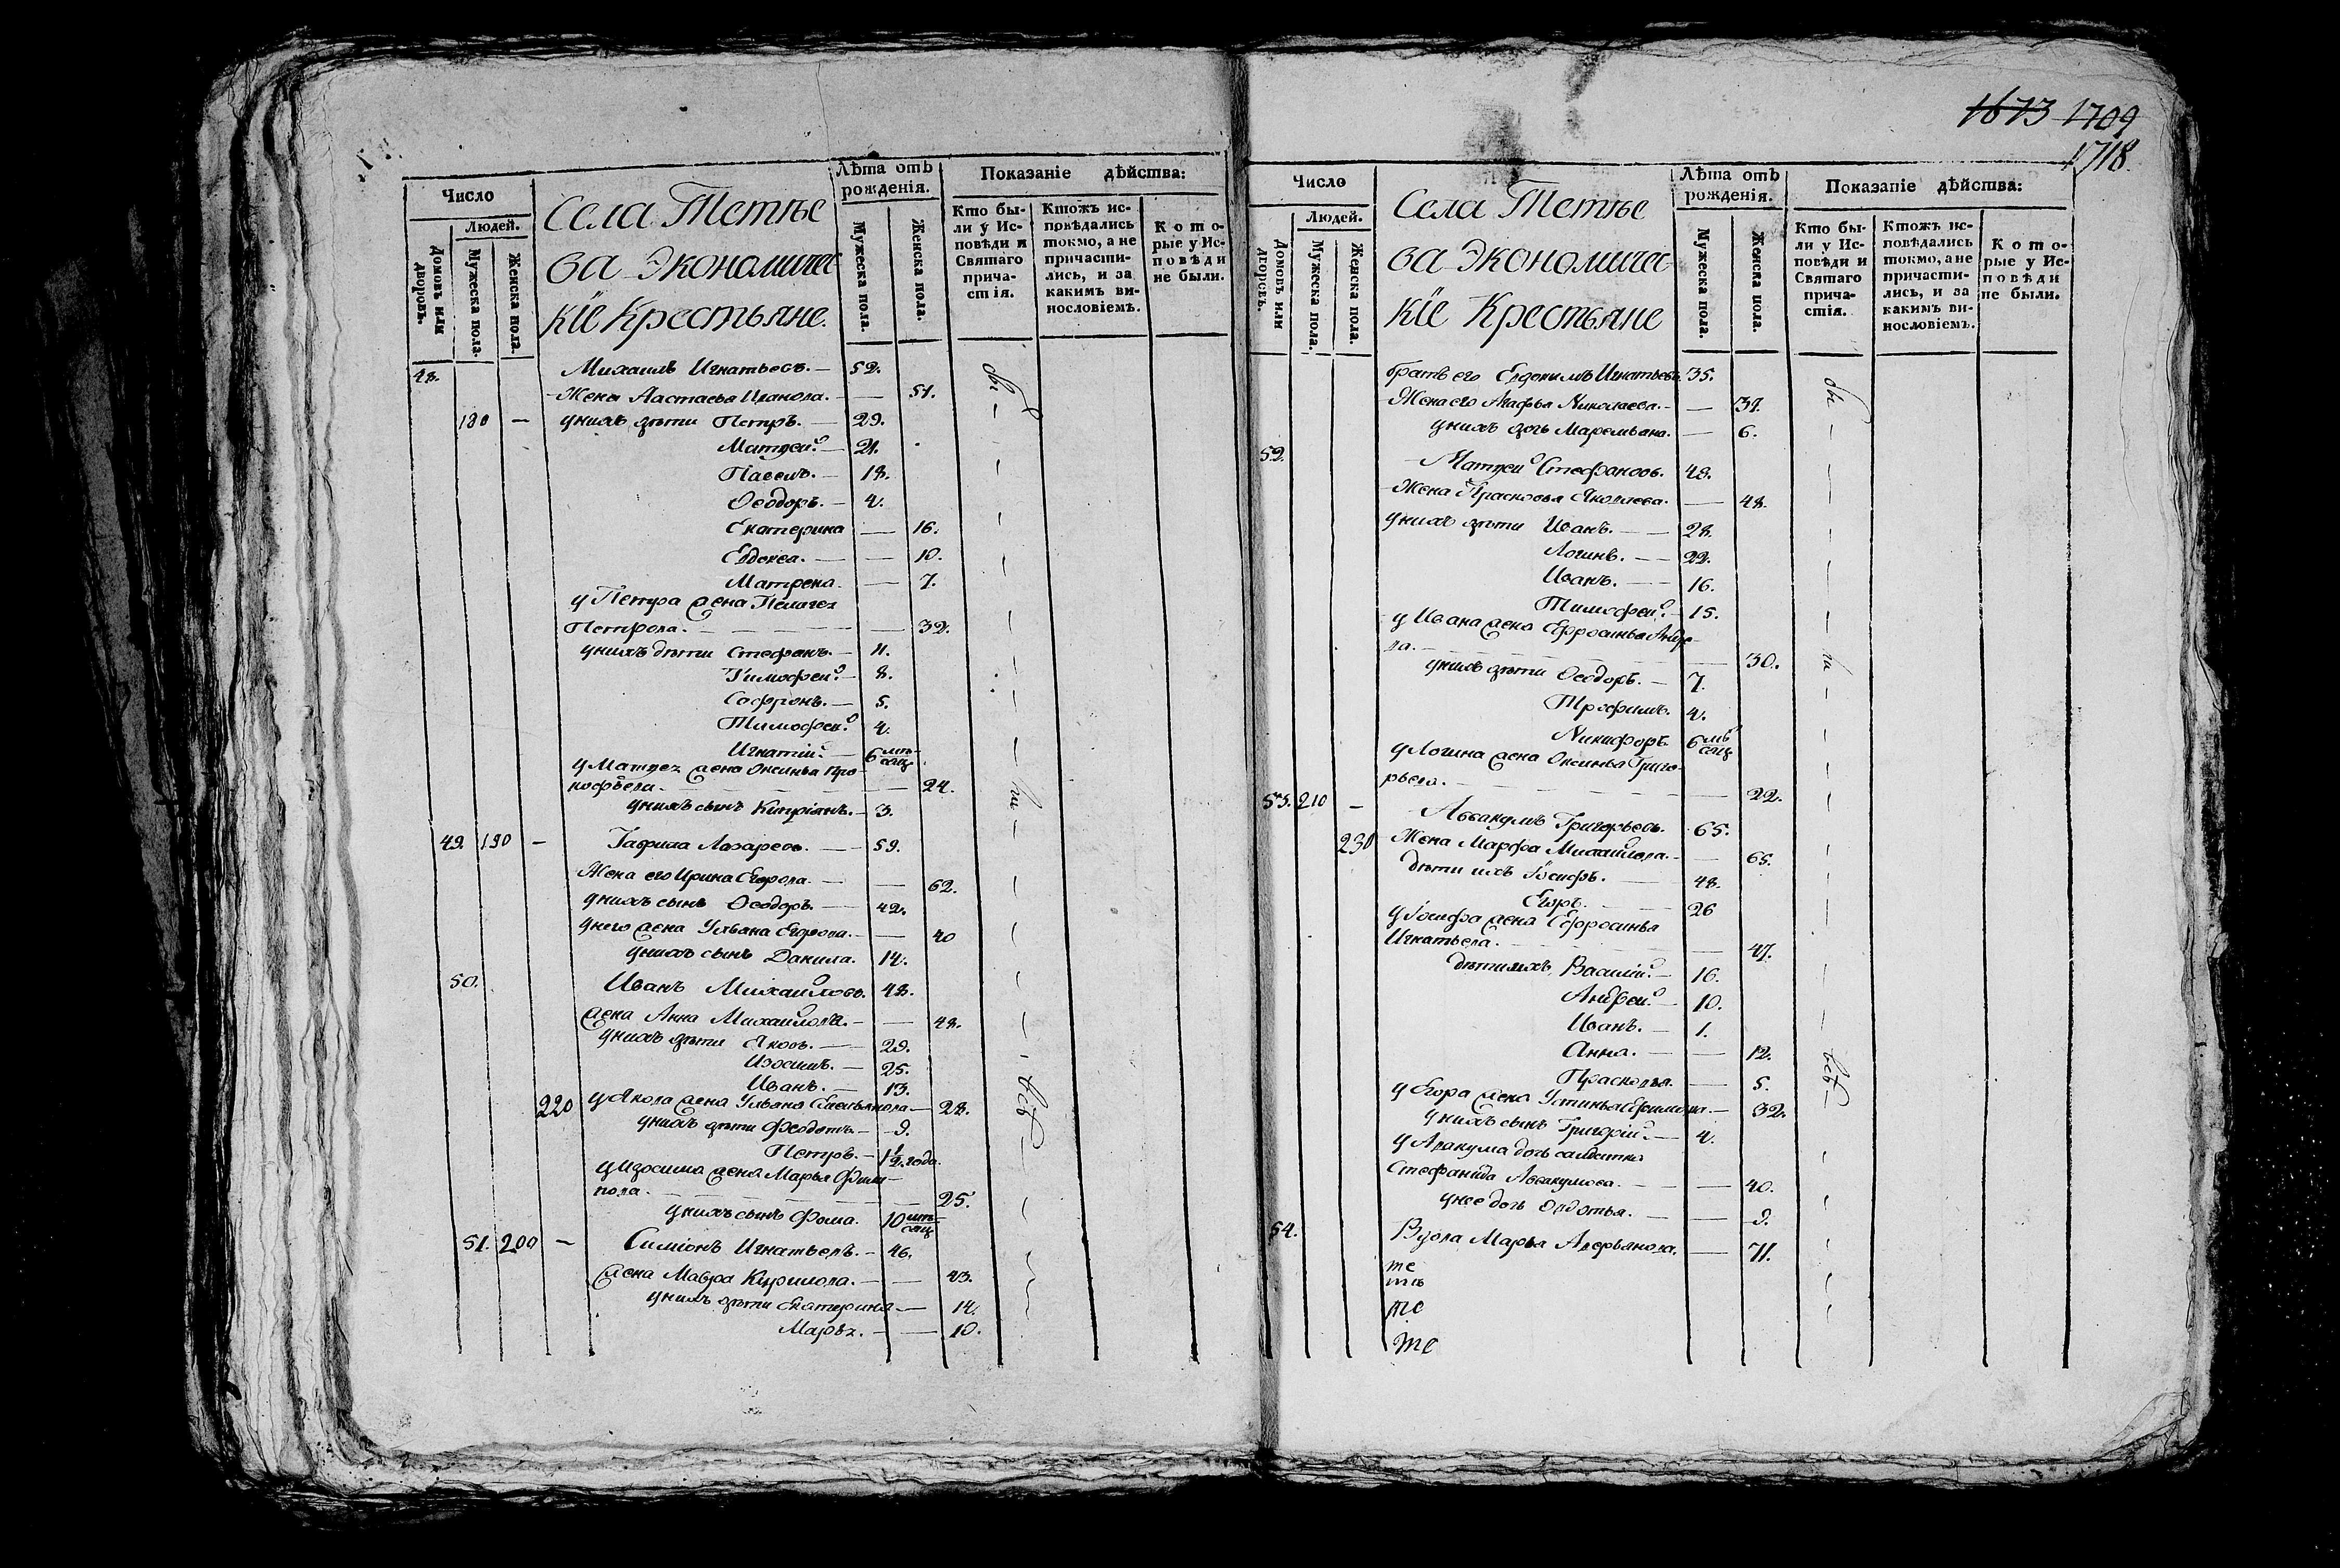 1673 1709
1718.
Число
Людей.
Домовъ или дворовъ.
Мужеска пола.
Женска пола.
Села Тетѣе
ва Экономичес
кїе Крестьяне.
Лѣта отъ рожденія.
Мужеска пола.
Женска пола.
Показаніе дѣйства:
Кто были у Исповѣди и Святаго причастія.
Ктожъ исповѣдались токмо, а не причастились, и за какимъ винословіемъ.
Которые у Исповѣди не были.
48. Михаилъ Игнатьевъ. — 52.
Жена Настасья Иванова. — — 51.
180 — у нихъ дѣти Петръ. — 29.
Матѳеи — 21.
Павелъ. — 18.
Ѳеодоръ. — 4.
Екатерина — 16.
Евдокеа. — — 10.
Матрена. — 7.
у Петра жена Пелагея
Петрова. — 32.
у нихъ дѣти Стефанъ. — 11.
Тимофеи. — 8.
Софронъ. — 5.
Тимофеи. 4.
Игнатіи. — 6 мѣсяц
у Матѳея жена Оксинья Про
кофьева. — 24.
у нихъ сынъ Кипріянъ. — 3.
49. 190 — Гаврила Лазаревъ. — 59.
Жена его Ирина Егорова. — — 62.
у нихъ сынъ Ѳеодоръ. — 42.
у него жена Ульяна Егорова. — — 40
у нихъ сынъ Данила. 14.
50. Иванъ Михаиловъ. 48.
жена Анна Михаилова. — — 48.
у нихъ дѣти Яковъ. — 29.
Изосимъ. — 25.
Иванъ. — 13.
220 у Якова жена Ульяна Емельянова — 28.
у нихъ дѣти Феодотъ. — 9.
Петръ. — 1 1/2 года.
у Изосима жена Марья Фили
пова. — 25.
у нихъ сынъ Фома. 10 мѣсяц
51. 200 — Симіонъ Игнатьевъ. — 46.
жена Мавра Кирилова. — — 43.
у нихъ дѣти Екатерина — 14.
Марья. — — 10.
Число
Людей.
Домовъ или дворовъ.
Мужеска пола.
Женска пола.
Села Тетѣе
ва Экономичес
кїе Крестьяне
Лѣта отъ рожденія.
Мужеска пола.
Женска пола.
Показаніе дѣйства:
Кто были у Исповѣди и Святаго причастія.
Ктожъ исповѣдались токмо, а не причастились, и за какимъ винословіемъ.
Которые у Исповѣди не были.
братъ его Евдокимъ Игнатьевъ. 35.
Жена его Агафья Николаева. — — 37.
у нихъ дочь Маремьяна. — 6.
52. Матѳеи Стефановъ. 48.
Жена Прасковья Яковлева. — 48.
у нихъ дѣти Иванъ. — 28.
Логинъ. — 22.
Иванъ. — 16.
Тимофеи. 15.
у Ивана жена Ефросинья
ва. — 30.
у нихъ дѣти Ѳеодоръ. — 7.
Трофимъ. 4.
Никифоръ. 6 мѣсяц
у Логина жена Оксинья Григо
рьева. — 22.
53. 210 — Аввакумъ Григорьевъ. 65.
230 Жена Марфа Михаилова. — — 65.
дѣти ихъ Іосифъ. — 48.
Егоръ. — 26
у Іосифа жена Ефросинья
Игнатьева. — 47.
дѣти ихъ Василіи. — 16.
Андреи. — 10.
Иванъ. — 1.
Анна. — — 12.
Прасковья. — 5.
у Егора жена Устинья Ефимова. — 32.
у нихъ сынъ Григоріи. — 4.
у Авакума дочь салдатка
Стефанида Аввакумова. — — 40.
у нее дочь Овдотья. — — 9.
54. Вдова Марья Аверьянова. — 71.
те
те
те